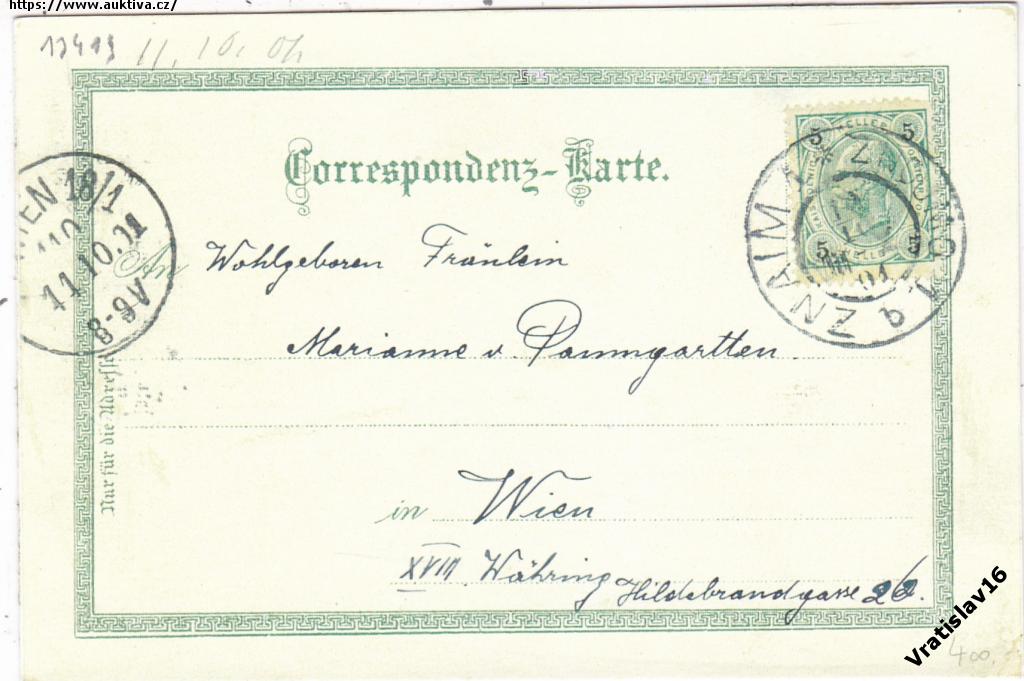 https://www.auktiva.cz/
Correspondenz-Karte.
WIEN 18/1
110
11.10.
8-9A
ZNAIM
ZNOJMO
01
5 5
5 5
An Wohlgeboren Fräulein
Marianne v. Baumgartten
in Wien
XVIII Währing Hildebrandgasse 22.
Nur für die Adresse
Vratislav16
400.